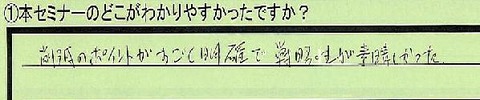 ①本セミナーのどこがわかりやすかったですか？
のポイントがすごく明確で 戦略性が素晴しかった